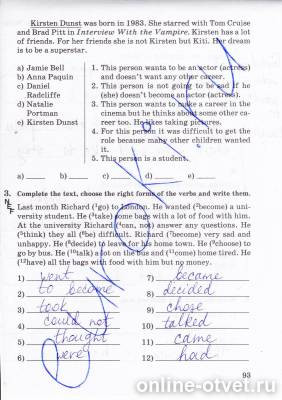 Kirsten Dunst was born in 1983. She starred with Tom Cruise
and Brad Pitt in Interview With the Vampire. Kirsten has a lot
of friends. For her friends she is not Kirsten but Kiti. Her dream
is to be a superstar.
a) Jamie Bell
b) Anna Paquin
c) Daniel
Radcliffe
d) Natalie
Portman
e) Kirsten Dunst
1. This person wants to be an actor (actress)
and doesn't want any other career.
2. This person is not going to be sad if he
(she) doesn't become an actor (actress).
3. This person wants to make a career in the
cinema but he thinks about some other ca-
reer too. He likes taking pictures.
4. For this person it was difficult to get the
role because many other children wanted
it.
5. This person is a student.
a) b) c) d) e)
3. Complete the text, choose the right forms of the verbs and write them.
Last month Richard (1go) to London. He wanted (2become) a uni-
versity student. He (3take) some bags with a lot of food with him.
At the university Richard (4can, not) answer any questions. He
(5think) they all (6be) difficult. Richard (7become) very sad and
unhappy. He (8decide) to leave for his home town. He (9choose) to
go by bus. He (10talk) a lot on the bus and (11come) home tired. He
(12have) all the bags with food with him but no money.
1) went 7) became
2) to become 8) decided
3) took 9) chose
4) could not 10) talked
5) thought 11) came
6) were 12) had
93
online-otvet.ru